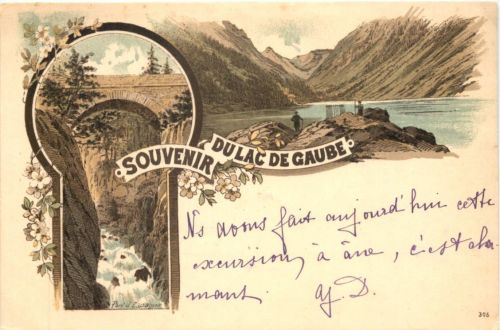 SOUVENIR DU LAC DE GAUBE
Ns avons fait aujourd'hui cette
excursion à âne, c'est char
mant. Y. D.
Pont d'Espagne
306